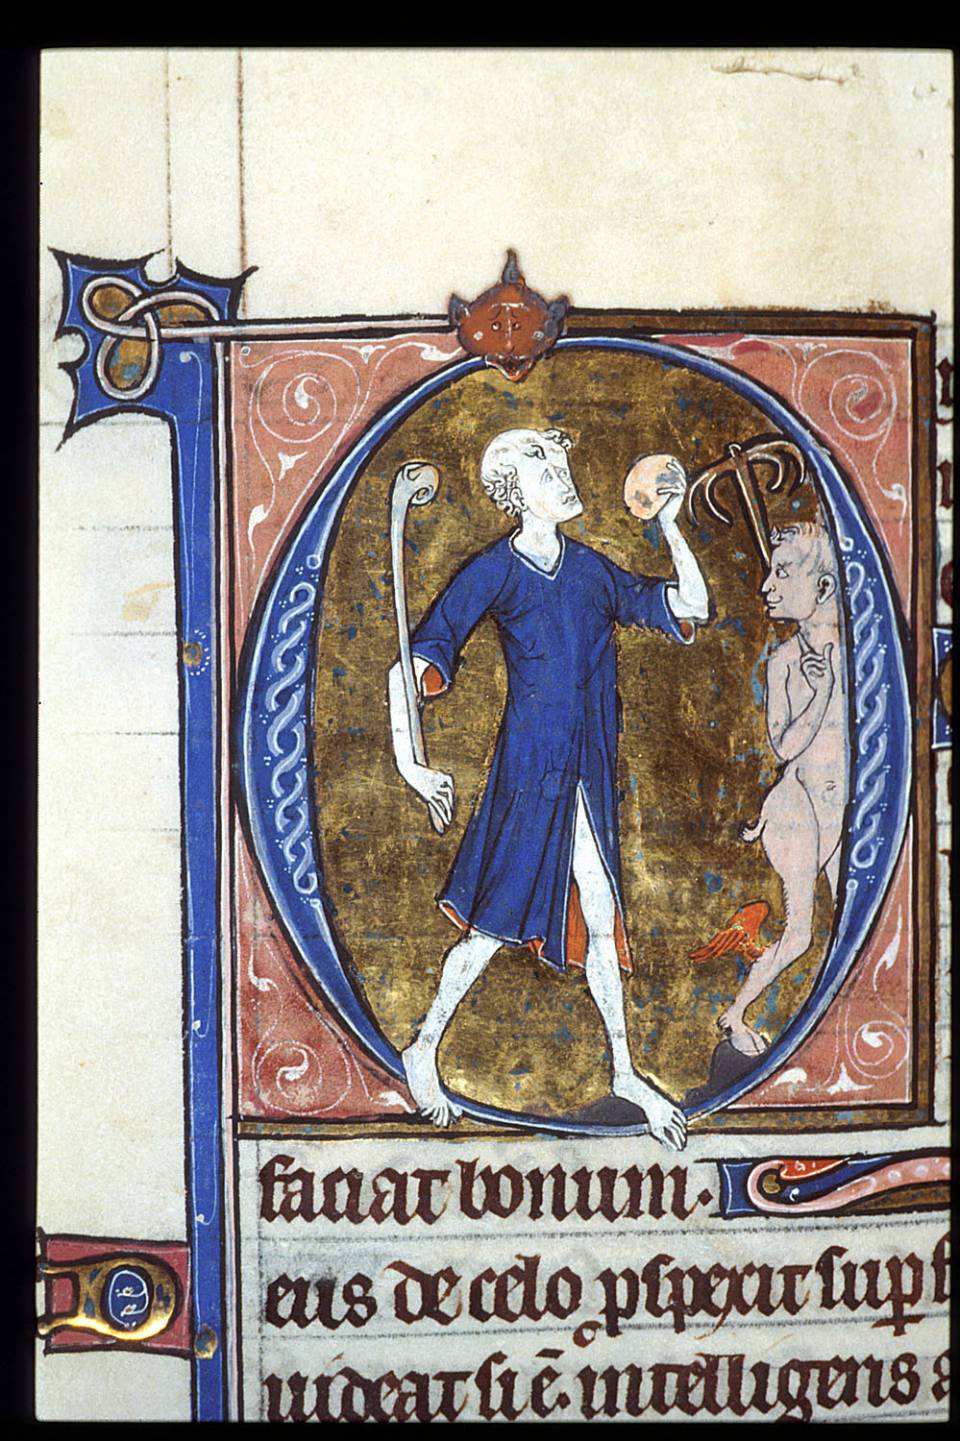 faciat bonum.
eus de celo pspexit sup
uideat si ē intelligens a